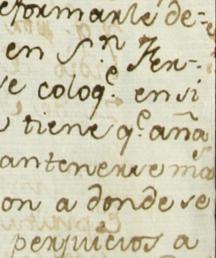 eformarle de-
en S.n Fer-
se coloq.e en si
tiene q.e aña
antenerse ma
on a donde se
perjuicios a